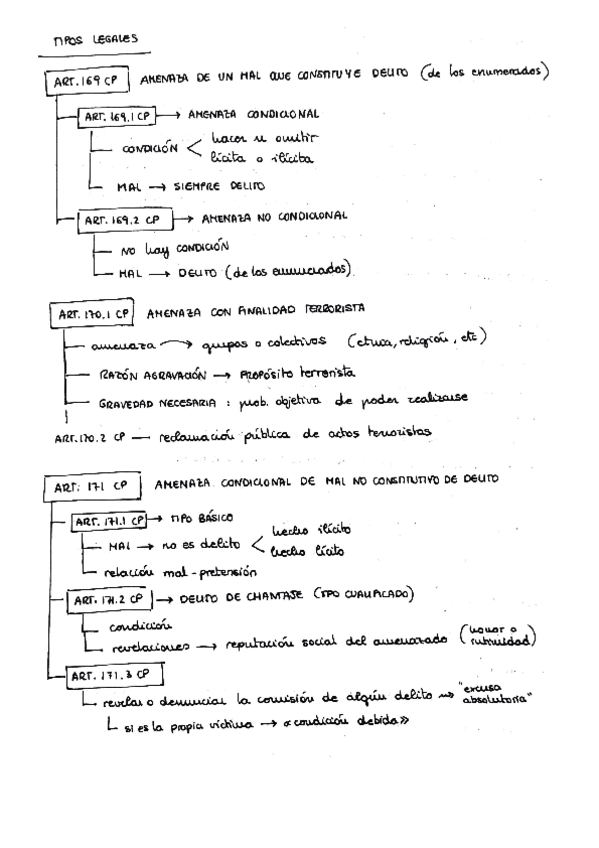 TIPOS LEGALES
ART. 169 CP AMENAZA DE UN MAL QUE CONSTITUYE DELITO (de los enumerados)
ART. 169.1 CP → AMENAZA CONDICIONAL
CONDICIÓN < hacer u omitir
lícita o ilícita
MAL → SIEMPRE DELITO
ART. 169.2 CP → AMENAZA NO CONDICIONAL
NO hay CONDICIÓN
MAL → DELITO (de los enunciados)
ART. 170.1 CP AMENAZA CON FINALIDAD TERRORISTA
amenaza → grupos o colectivos (etnia, religión, etc)
RAZÓN AGRAVACIÓN → PROPÓSITO terrorista
GRAVEDAD NECESARIA : prob. objetiva de poder realizarse
ART. 170.2 CP — reclamación pública de actos terroristas
ART. 171 CP AMENAZA CONDICIONAL DE MAL NO CONSTITUTIVO DE DELITO
ART. 171.1 CP → TIPO BÁSICO
MAL → no es delito < hecho ilícito
hecho lícito
relación mal - pretensión
ART. 171.2 CP → DELITO DE CHANTAJE (TIPO CUALIFICADO)
condición
revelaciones → reputación social del amenazado (honor o intimidad)
ART. 171.3 CP
revelar o denunciar la comisión de algún delito → "excusa absolutoria"
si es la propia víctima → «condición debida»